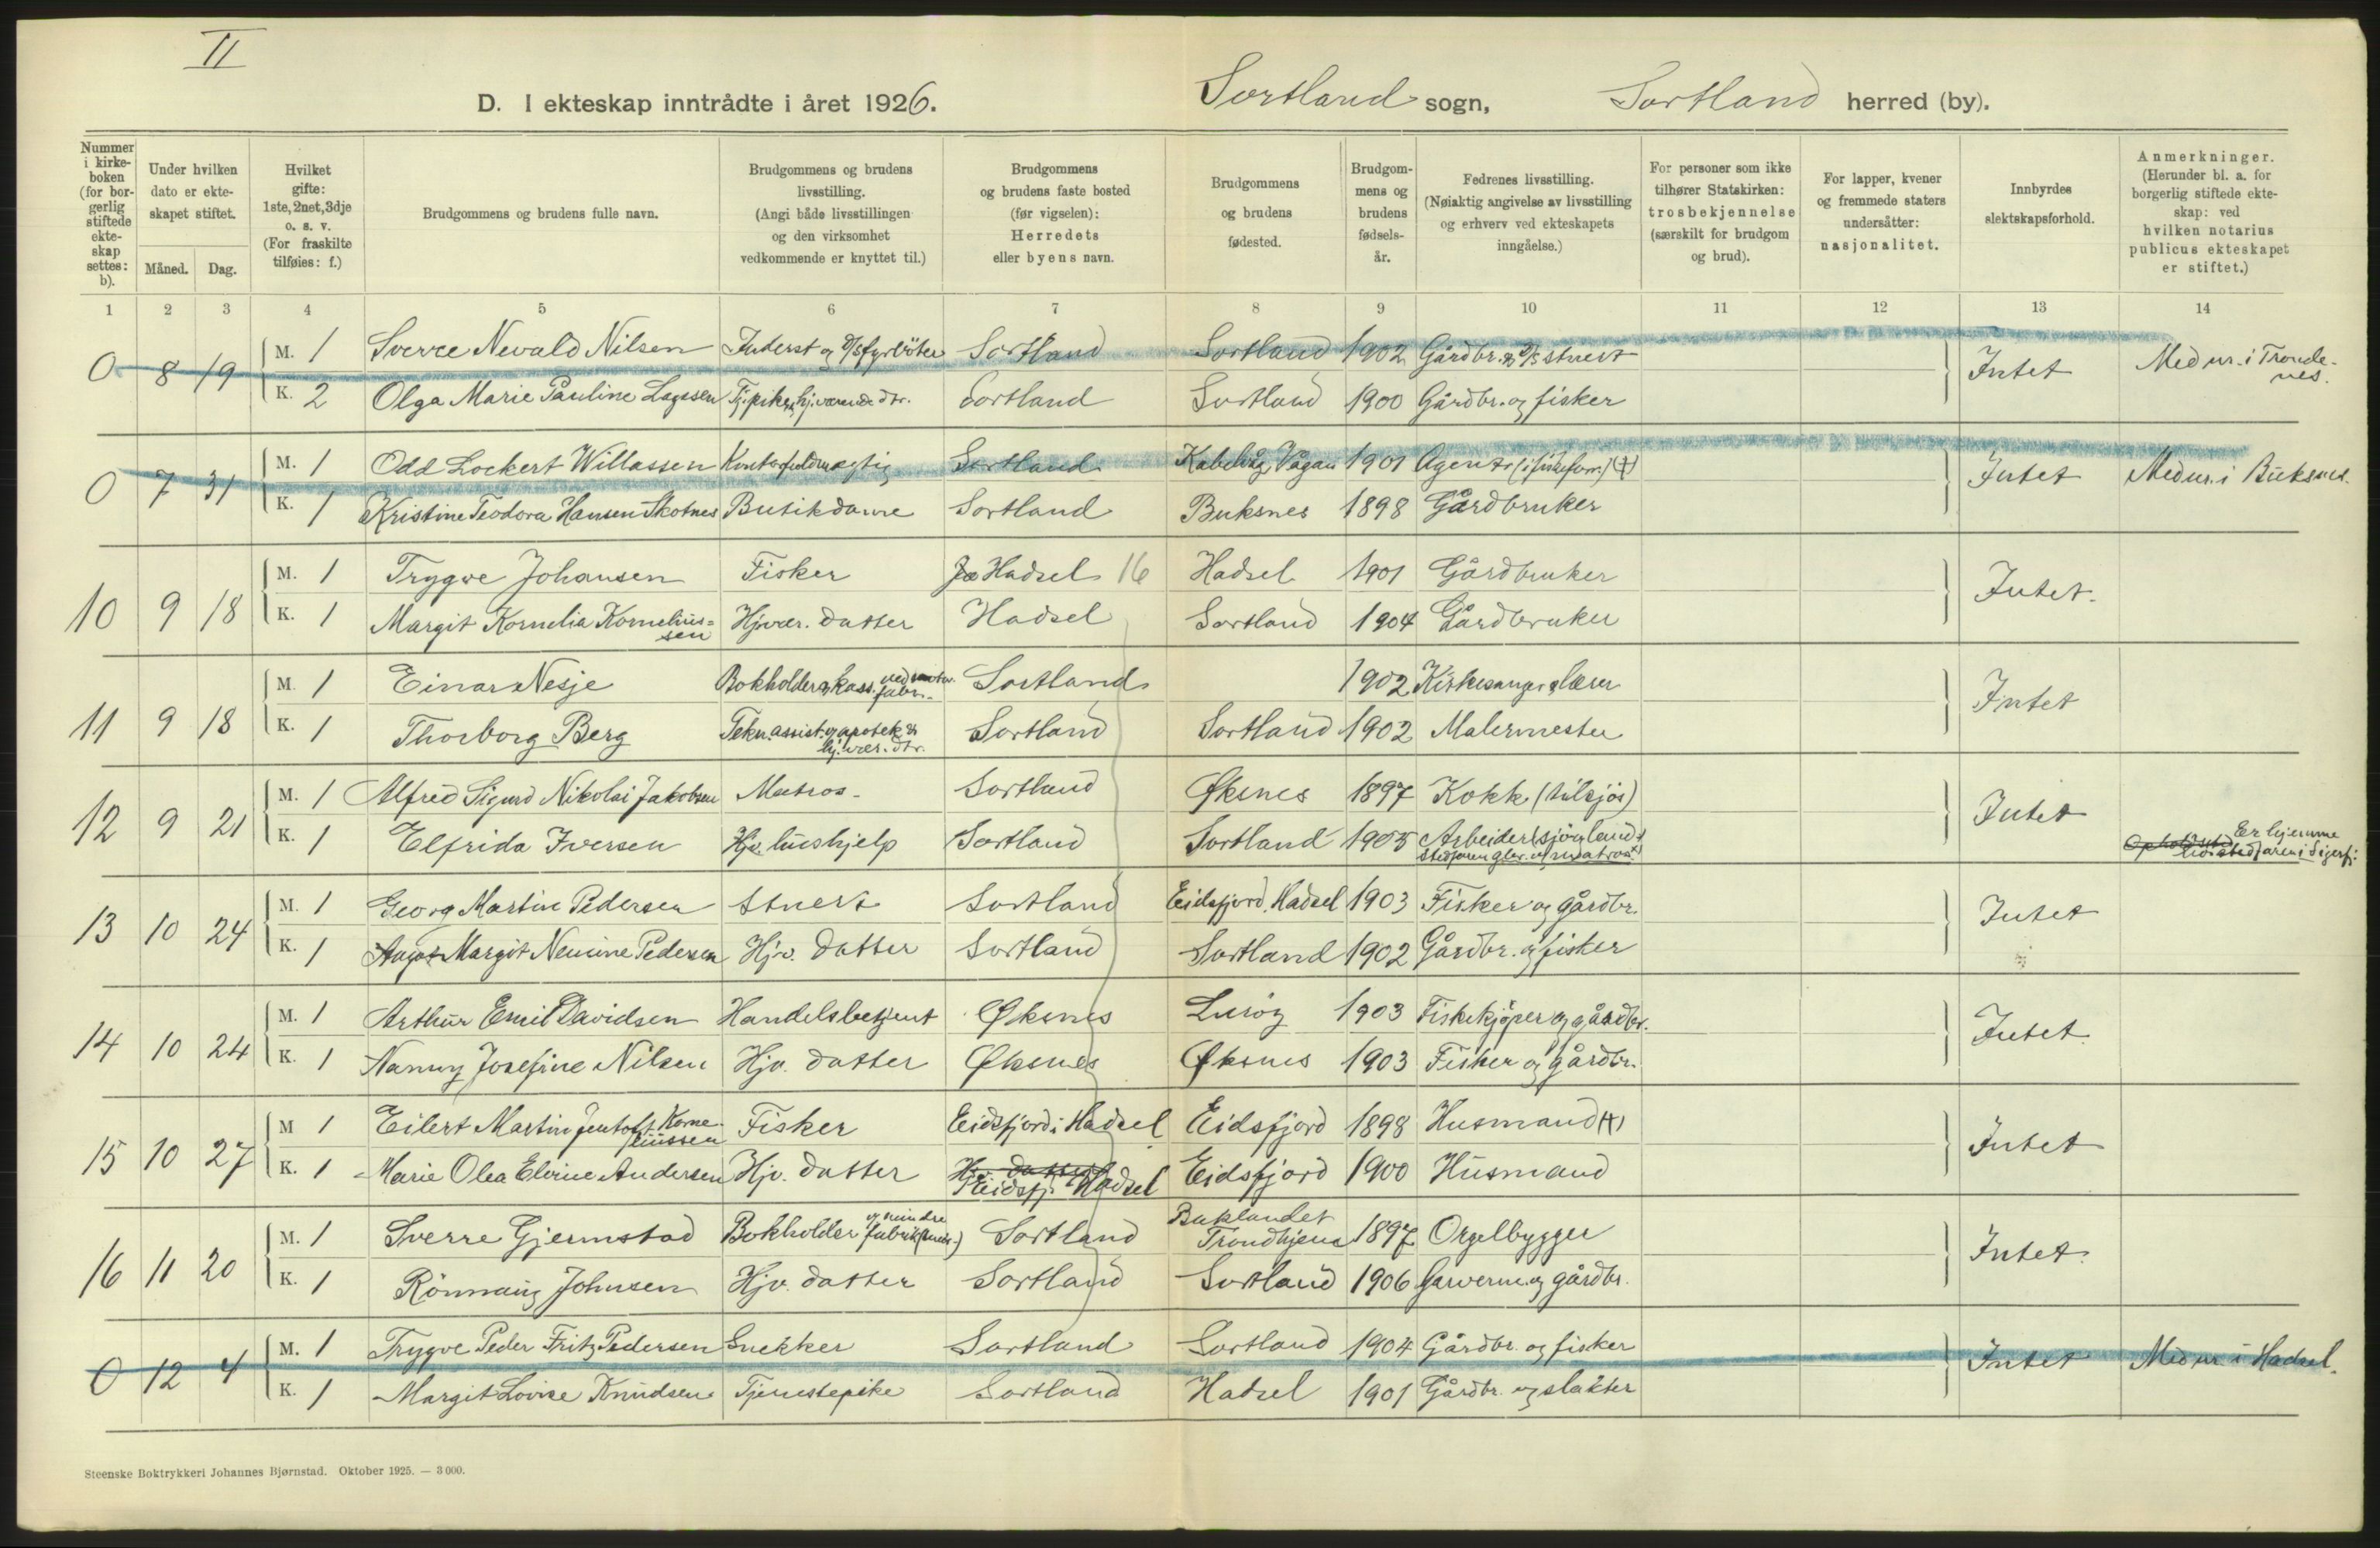 II
D. I ekteskap inntrådte i året 1926. Sortland sogn, Sortland herred (by).
Nummer i kirke-boken (for bor-gerlig stiftede ekte-skap settes: b).
Under hvilken dato er ekte-skapet stiftet.
Måned. Dag.
Hvilket gifte: 1ste, 2net, 3dje o. s. v. (For fraskilte tilføies: f.)
Brudgommens og brudens fulle navn.
Brudgommens og brudens livsstilling. (Angi både livsstillingen og den virksomhet vedkommende er knyttet til.)
Brudgommens og brudens faste bosted (før vigselen): Herredets eller byens navn.
Brudgommens og brudens fødested.
Brudgom-mens og brudens fødsels-år.
Fedrenes livsstilling. (Nøiaktig angivelse av livsstilling og erhverv ved ekteskapets inngåelse.)
For personer som ikke tilhører Statskirken: trosbekjennelse (særskilt for brudgom og brud).
For lapper, kvener og fremmede staters undersåtter: nasjonalitet.
Innbyrdes slektskapsforhold.
Anmerkninger. (Herunder bl. a. for borgerlig stiftede ekte-skap: ved hvilken notarius publicus ekteskapet er stiftet.)
1 2 3 4 5 6 7 8 9 10 11 12 13 14
0 8 19 M. 1 Sverre Nevald Nilsen Inderst og D/S fyrbøter Sortland Sortland 1902 Gårdbr. og D/S stuert Intet Med nr. i Tronde-nes.
K. 2 Olga Marie Pauline Tj.pike hj.værende dtr. Sortland Sortland 1900 Gårdbr. og fisker
0 7 31 M. 1 Odd Lockert Willassen Kontorfuldmægtig Sortland Kabelvåg, Vågan 1901 Agent (i fiskeforr.) (†) Intet Med nr. i Buksnes.
K. 1 Kristine Teodora Hansen Skotnes Butikdame Sortland Buksnes 1898 Gårdbruker
10 9 18 M. 1 Trygve Johansen Fisker Hadsel 16 Hadsel 1901 Gårdbruker Intet.
K. 1 Margit Kornelia Kornelius=sen Hjvær. datter Hadsel Sortland 1904 Gårdbruker
11 9 18 M. 1 Einar Nesje Bokholder og kass. Sortland 1902 Kirkesanger og lærer Intet
K. 1 Thorborg Berg Tekn. assist. og apotek & hj. vær. dtr. Sortland Sortland 1902 Malermester
12 9 21 M. 1 Alfred Sigurd Nikolai Jakobsen Matros Sortland Øksnes 1897 Kokk (tilsjøs) Intet
K. 1 Elfrida Iversen Hjv. hushjelp Sortland Sortland 1905 Arbeider (sjø og land) Er hjemme
stedfaren gbr. og matros hos stedfaren i Sigerfj.
13 10 24 M. 1 Georg Martin Pedersen Stuert Sortland Eidsfjord, Hadsel 1903 Fisker og gårdbr. Intet
K. 1 Margit Pedersen Hjv. datter Sortland Sortland 1902 Gårdbr. og fisker
14 10 24 M. 1 Arthur Emil Davidsen Handelsbetjent Øksnes Lurøy 1903 Fiskekjøper og gårdbr. Intet.
K. 1 Nanny Josefine Nilsen Hjv. datter Øksnes Øksnes 1903 Fisker og gårdbr.
15 10 27 M 1 Eilert Martin Jentoft Korne-liussen Fisker Eidsfjord i Hadsel Eidsfjord 1898 Husmand (†) Intet
K. 1 Marie Olea Elvine Andersen Hjv. datter Hjv. datter Eidsfj. Hadsel Eidsfjord 1900 Husmand
16 11 20 M. 1 Sverre Gjermstad Bokholder og mindre Sortland Baklandet Trondhjem 1897 Orgelbygger Intet.
K. 1 Rönnaug Johnsen Hjv. datter Sortland Sortland 1906 Garverm. og gårdbr.
0 12 4 M. 1 Trygve Peder Fritz Pedersen Snekker Sortland Sortland 1904 Gårdbr. og fisker Intet Med nr. i Hadsel.
K. 1 Margit Lovise Knudsen Tjenestepike Sortland Hadsel 1901 Gårdbr. og slakter
Steenske Boktrykkeri Johannes Bjørnstad. Oktober 1925. — 3 000.